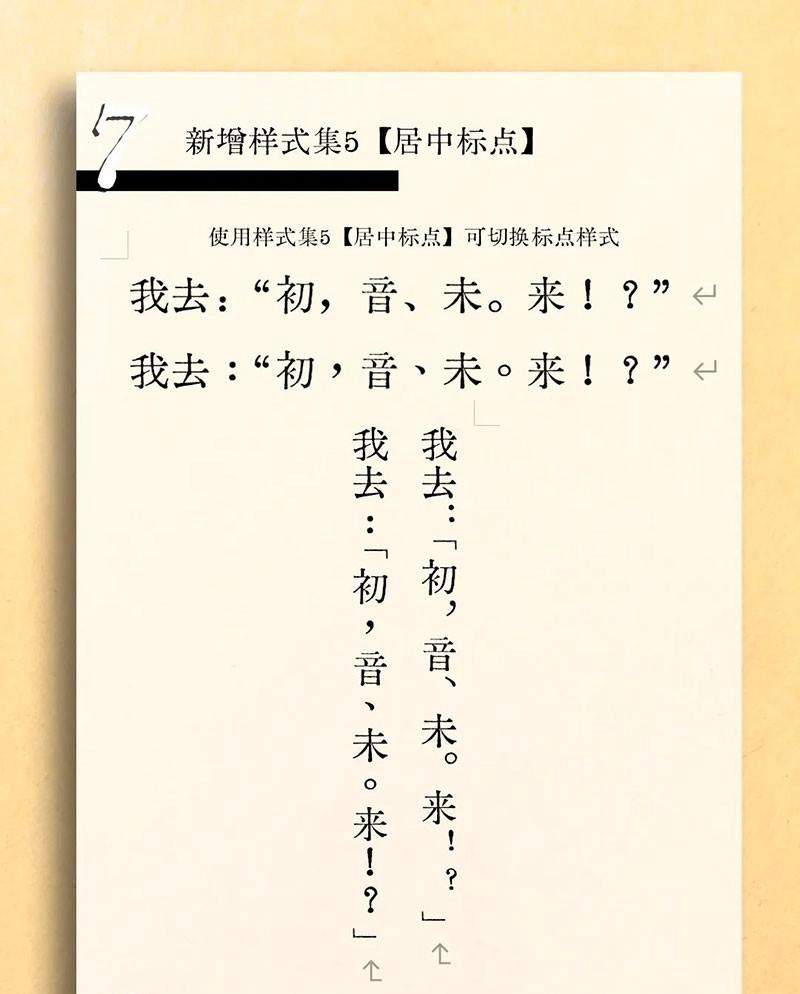 7
新增样式集5【居中标点】
使用样式集5【居中标点】可切换标点样式
我去：“初，音、未。来！？”
我去：“初，音、未。来！？”
我去：「初，音、未。来！？」
我去：「初，音、未。来！？」